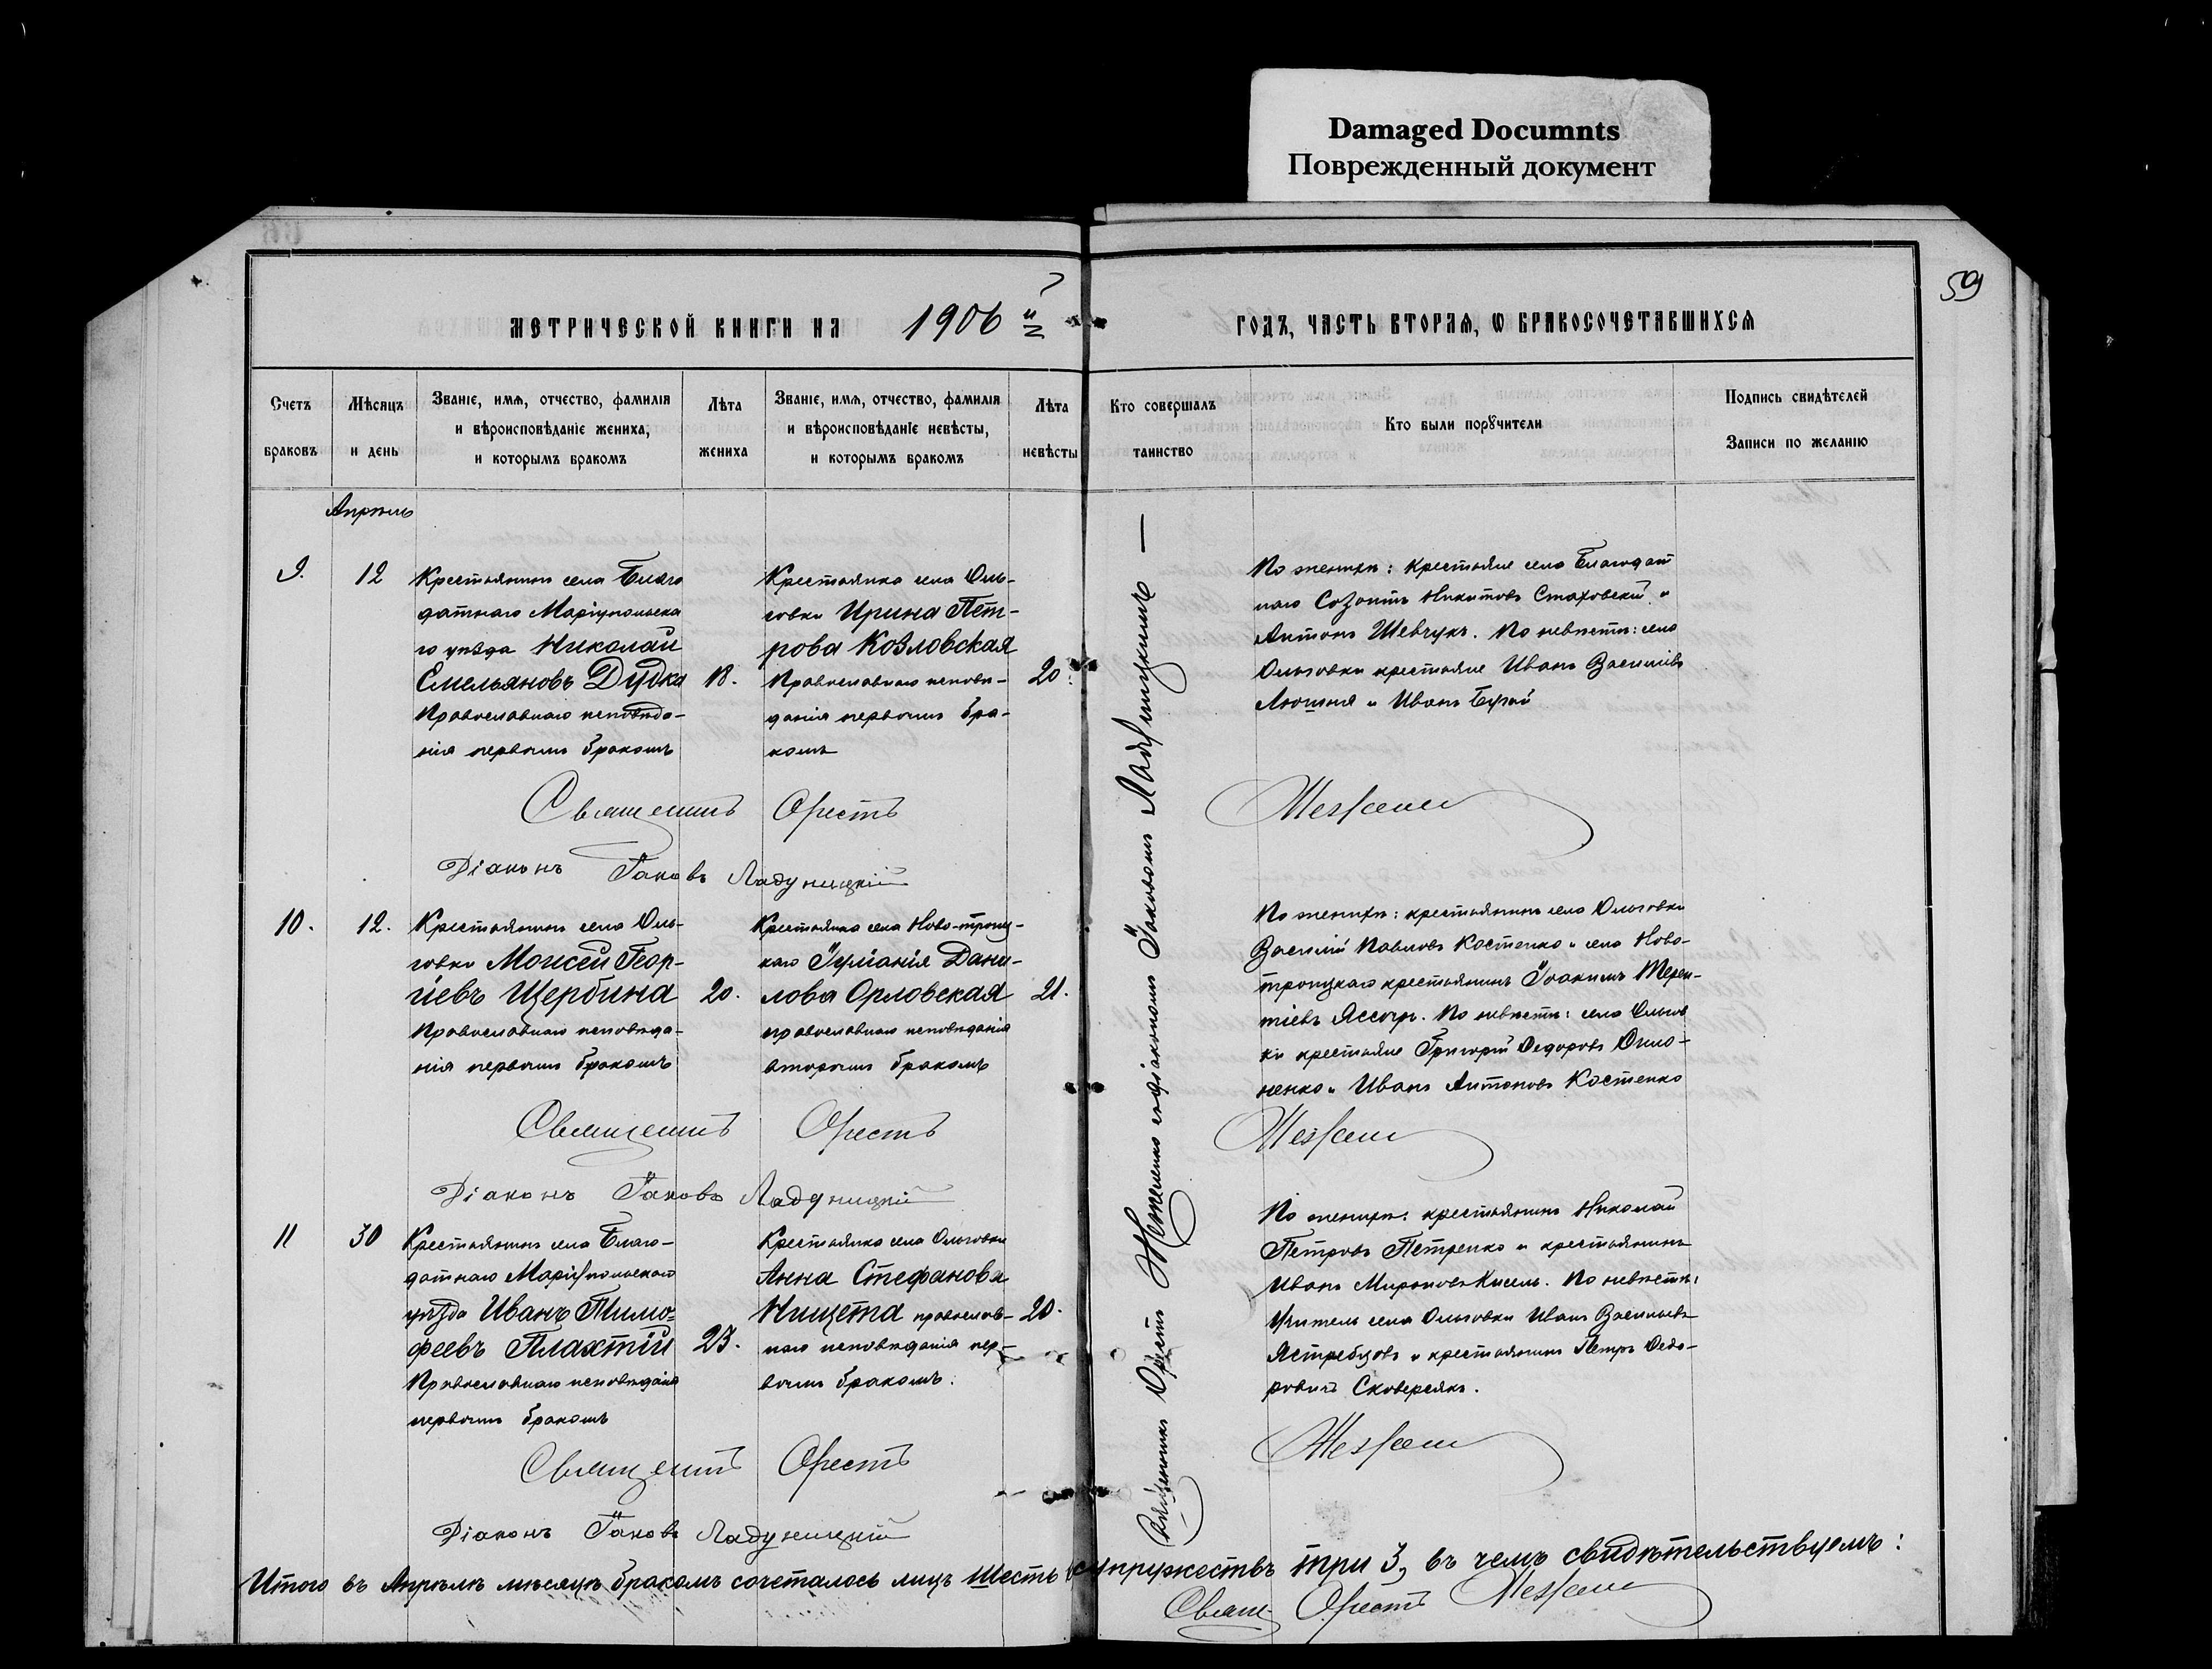 Damaged Documnts
Поврежденный документ
59
МЕТРИЧЕСКОЙ КНИГИ НА 1906 й
ГОДЪ, ЧАСТЬ ВТОРАЯ, Ѡ БРАКОСОЧЕТАВШИХСЯ
Счетъ браковъ
Мѣсяцъ и день
Званіе, имя, отчество, фамилія
и вѣроисповѣданіе жениха,
и которымъ бракомъ
Лѣта жениха
Званіе, имя, отчество, фамилія
и вѣроисповѣданіе невѣсты,
и которымъ бракомъ
Лѣта невѣсты
Кто совершалъ таинство
Кто были порꙋчители
Подпись свидѣтелей
Записи по желанію
Апрѣль
9.
12
Крестьянинъ села Благо
датнаго Маріупольска
го уѣзда Николай
Емельяновъ Дудка
Православнаго исповѣда-
нія первымъ бракомъ
18.
Крестьянка села Оль-
говки Ирина Пет-
рова Козловская
Православнаго исповѣ-
данія первымъ бра-
комъ
20.
По женихѣ: крестьяне села Благодат
наго Созонтъ Никитовъ Стаховскій и
Антонъ Шевчукъ. По невѣстѣ: села
Ольговки крестьяне Иванъ Васильевъ
Иванъ
Священникъ Орестъ
Діаконъ Іаковъ Ладуницкій
10.
12.
Крестьянинъ села Оль-
говки Моисей Геор-
гіевъ Щербина
Православнаго исповѣда-
нія первымъ бракомъ
20.
Крестьянка села Ново-троиц-
каго Іуліанія Дани-
лова Орловская
православнаго исповѣданія
вторымъ бракомъ
21.
По женихѣ: крестьянинъ села Ольговки
Василій Павловъ Костенко и села Ново-
троицкаго крестьянинъ Іоакимъ Терен-
тіевъ По невѣстѣ: села Ольгов
ки крестьяне Григорій Ѳедоровъ
ненко и Иванъ Антоновъ Костенко
Священникъ Орестъ
Діаконъ Іаковъ Ладуницкій
11
30
Крестьянинъ села Благо-
датнаго Маріупольскаго
уѣзда Иванъ Тимо-
феевъ Плахтій
Православнаго исповѣданія
первымъ бракомъ
23.
Крестьянка села Ольговки
Анна Стефанова
Нищета православ-
наго исповѣданія пер-
вымъ бракомъ.
20.
По женихѣ: крестьянинъ Николай
Петровъ Петренко и крестьянинъ
Иванъ Мироновъ Кисель. По невѣстѣ:
Учитель села Ольговки Иванъ Васильевъ
Ястребцовъ и крестьянинъ Петръ Ѳедо-
ровичъ
Священникъ Орестъ
Діаконъ Іаковъ Ладуницкій
Священникъ Орестъ съ діакономъ Іаковомъ Ладуницкимъ —
Итого въ Апрѣлѣ мѣсяцѣ бракомъ сочеталось лицъ шесть супружествъ три 3, въ чемъ свидѣтельствуемъ:
Свящ Орестъ